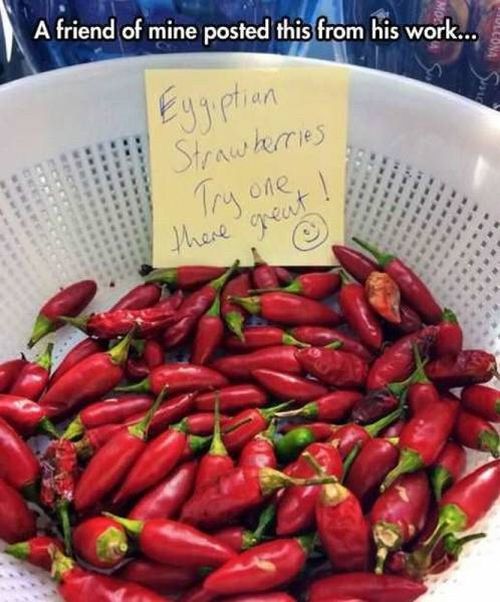 A friend of mine posted this from his work...
Eygiptian
Strawberries
Try one
there great!